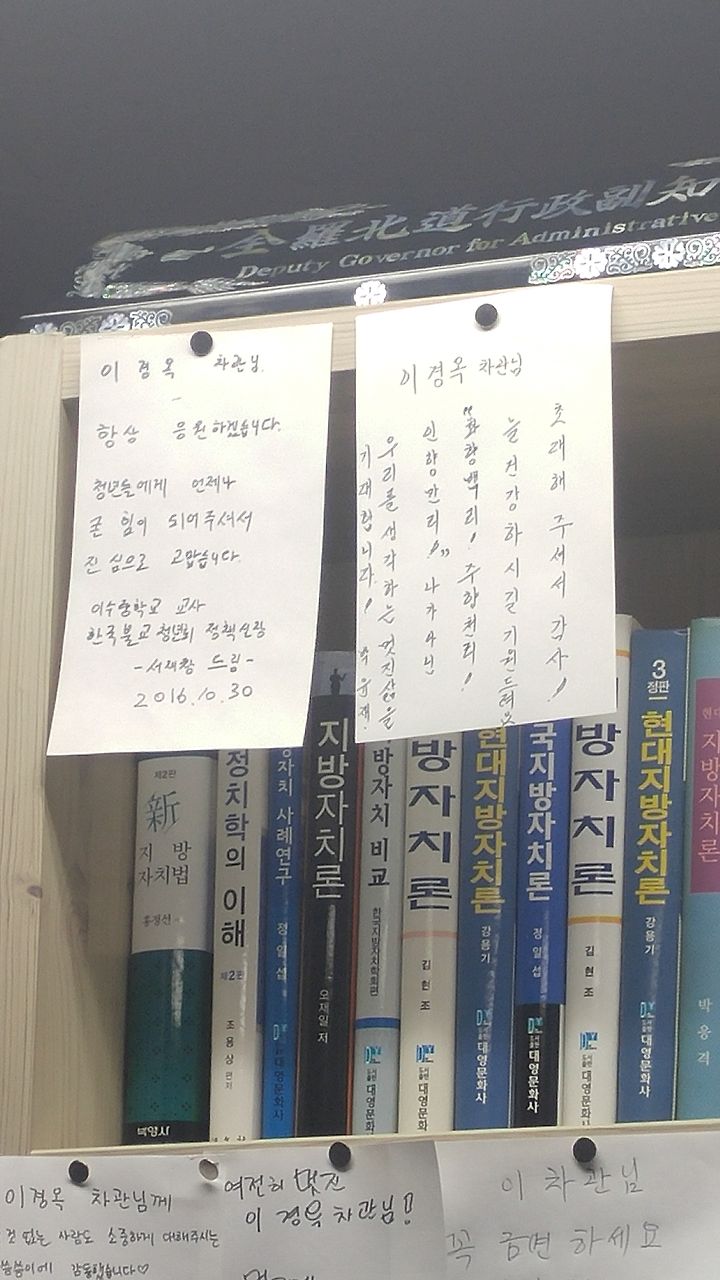 全羅北道行政副知
Deputy Governor for Administrative
이경옥 차관님.
항상 응원하겠습니다.
청년들에게 언제나
큰 힘이 되어주셔서
진심으로 고맙습니다.
이수중학교 교사
한국불교청년회 정책실장
-서재광 드림-
2016.10.30
이경옥 차관님
초대해 주셔서 감사!
늘 건강하시길 기원드려요
"화향백리! 주향천리!
인향만리!" 나가아닌
우리를 생각하는 멋진삶을
기대합니다!
제2판
新
지방
자치법
홍정선
박영사
정치학의 이해
제2판
조용상 편저
방자치 사례연구
정일섭
대영문화사
지방자치론
오재일 저
방자치 비교
한국지방자치학회편
도서출판 대영문화사
방자치론
김현조
도서출판 대영문화사
현대지방자치론
강용기
도서출판 대영문화사
국지방자치론
정일섭
도서출판 대영문화사
방자치론
김현조
도서출판 대영문화사
3
정판
현대지방자치론
강용기
도서출판 대영문화사
현대
지방자치론
박응격
이경옥 차관님께
것 없는 사람도 소중하게 대해주시는
감동했습니다♡
여전히 멋진
이경옥 차관님!
이 차관님
꼭 금연 하세요